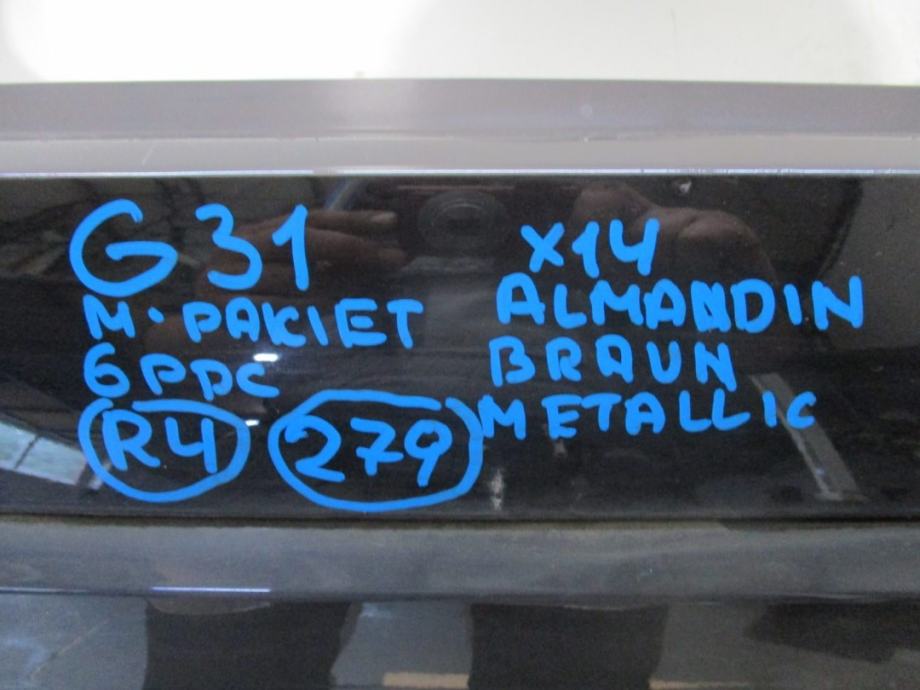 G31
M-PAKIET
6PDC
R4 279
X14
ALMANDIN
BRAUN
METALLIC